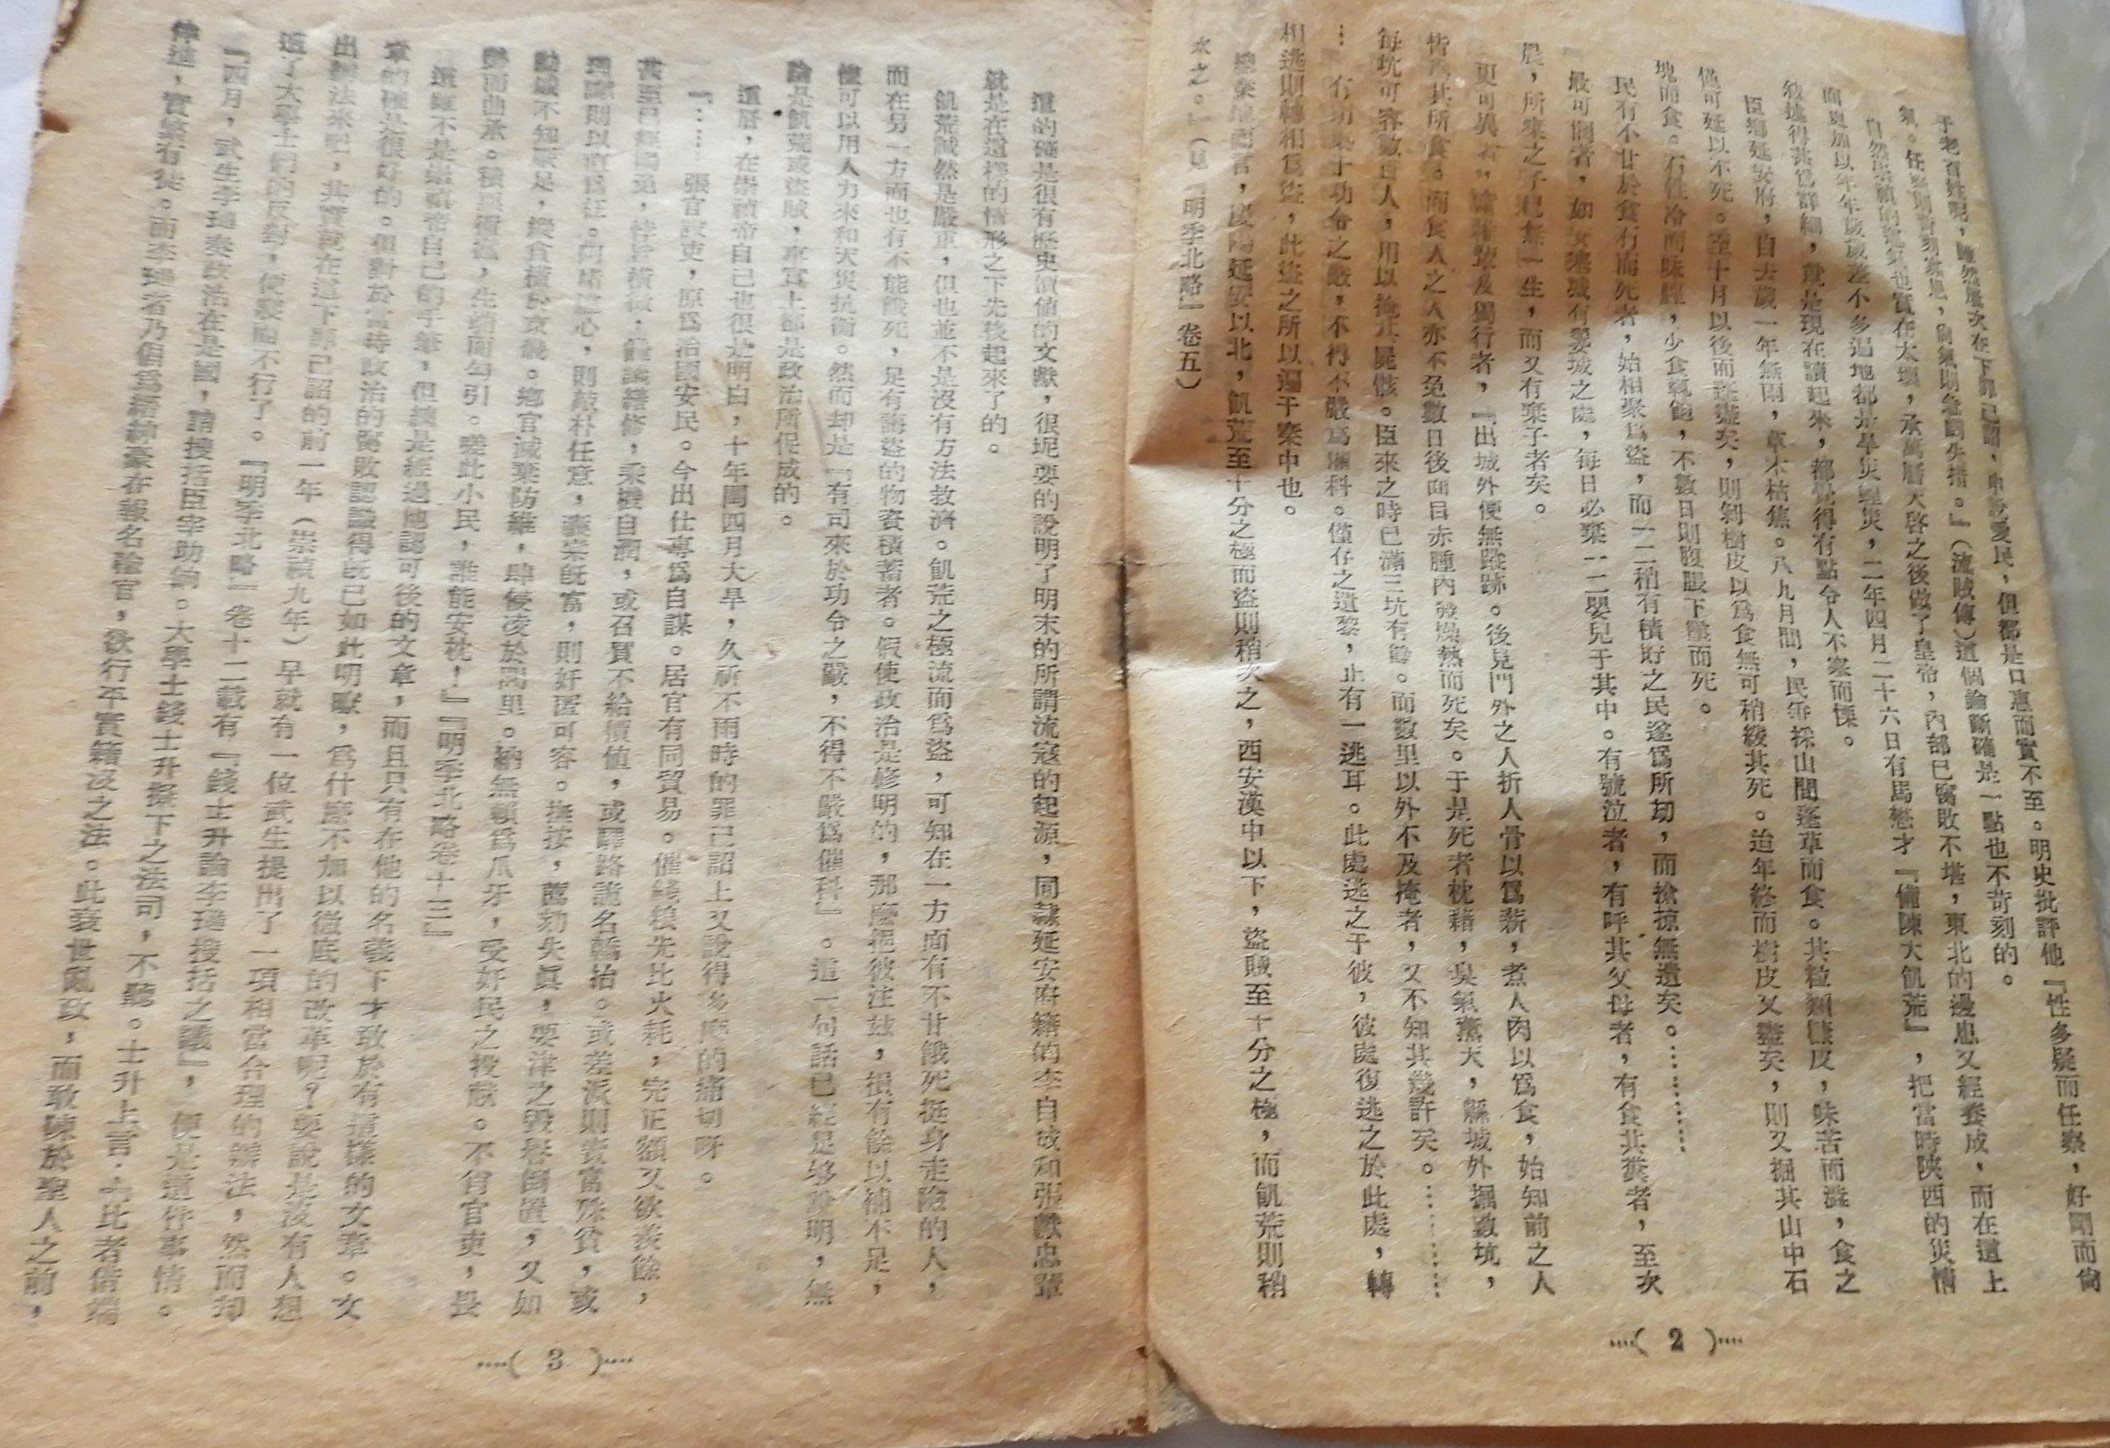 于老百姓呢，雖然屢次在下罪己詔，申說愛民，但都是口惠而實不至。明史批評他『性多疑而任察，好剛而尙
氣。任察則苛刻寡恩，尙氣則急劇失措。』（流賊傳）這個論斷確是一點也不苛刻的。
自然崇禎的運氣也實在太壞，承萬曆天啓之後做了皇帝，內部已腐敗不堪，東北的邊患又經養成，而在這上
面更加以年年歲歲差不多遍地都是旱災蝗災，二年四月二十六日有馬懋才『備陳大飢荒』，把當時陝西的災情
敍述得甚爲詳細，就是現在讀起來，都覺得有點令人不寒而慄。
臣鄉延安府，自去歲一年無雨，草木枯焦。八九月間，民爭採山間蓬草而食。其粒類糠皮，味苦而澀，食之
僅可延以不死。至十月以後而蓬盡矣，則剝樹皮以爲食無可稍緩其死。迨年終而樹皮又盡矣，則又掘其山中石
塊而食。石性冷而味腥，少食輒飽，不數日則腹脹下墜而死。
民有不甘於食石而死者，始相聚爲盜，而一二稍有積貯之民遂爲所刼，而搶掠無遺矣。…………
最可憫者，如安塞城有糞城之處，每日必棄一二嬰兒于其中。有號泣者，有呼其父母者，有食其糞者，至次
晨，所棄之子已無一生，而又有棄子者矣。
更可異者，童稚輩及獨行者，『出城外便無蹤跡。後見門外之人折人骨以爲薪，煮人肉以爲食，始知前之人
皆爲其所食。而食人之人亦不免數日後面目赤腫內發燥熱而死矣。于是死者枕藉，臭氣薰天，縣城外掘數坑，
每坑可容數百人，用以掩其屍骸。臣來之時已滿三坑有餘。而數里以外不及掩者，又不知其幾許矣。…………
…有功乘于功令之嚴，不得不嚴爲催科。僅存之遺黎，止有一逃耳。此處逃之于彼，彼處復逃之於此處，轉
相逃則轉相爲盜，此盜之所以遍于秦中也。
總秦地而言，慶陽延安以北，飢荒至十分之極而盜則稍次之，西安漢中以下，盜賊至十分之極，而飢荒則稍
次之。』（見『明季北略』卷五）
····（ 2 ）····
這的確是很有歷史價値的文獻，很扼要的說明了明末的所謂流寇的起源，同隸延安府籍的李自成和張獻忠輩
就是在這樣的情形之下先後起來了的。
飢荒誠然是嚴重，但也並不是沒有方法救濟。飢荒之極流而爲盜，可知在一方面有不甘餓死挺身走險的人，
而在另一方面也有不能餓死，足有誨盜的物資積蓄者。假使政治是修明的，那麼挹彼注茲，損有餘以補不足，
儘可以用人力來和天災抗衡。然而却是『有司束於功令之嚴，不得不嚴爲催科』。這一句話已經足够說明，無
論是飢荒或盜賊，事實上都是政治所促成的。
這層，在崇禎帝自己也很是明白，十年閏四月大旱，久祈不雨時的罪己詔上又說得多麼的痛切呀。
『……張官設吏，原爲治國安民。今出仕專爲自謀。居官有同貿易。催錢糧先比火耗，完正額又欲羨餘，
甚至已經蠲免，悖旨橫徵，纔議繕修，乘機自潤，或召買不給價値，或驛路詭名轎抬。或差派則賣富殊貧，或
理讞則以直爲枉。阿堵迷心，則敲朴任意，囊橐旣富，則奸匿可容。撫按，薦劾失眞，要津之毀譽倒置，又如
勳戚不知厭足，縱貪橫於京畿。鄉官滅棄防維，肆侵凌於閭里。納無賴爲爪牙，受奸民之投獻。不肖官吏，畏
勢而曲承。積惡衙蠹，生端而勾引。嗟此小民，誰能安枕！』『明季北略卷十三』
這雖不是崇禎帝自己的手筆，但總是經過他認可後的文章，而且只有在他的名義下才敢於有這樣的文章。文
章的確是很好的。但對於當時政治的腐敗認識得旣已如此明暸，爲什麼不加以徹底的改革呢？要說是沒有人想
出辦法來吧，其實就在這下罪己詔的前一年（崇禎九年）早就有一位武生提出了一項相當合理的辦法，然而却
遭了大學士們的反對，便寢而不行了。『明季北略』卷十二載有『錢士升論李璡搜括之議』，便是這件事情。
『四月，武生李璡奏致治在足國，請搜括臣宰助餉。大學士錢士升擬下之法司，不聽。士升上言：『比者借端
倖進，實繁有徒。而李璡者乃倡爲縉紳豪右報名輸官，欲行手實籍沒之法。此衰世亂政，而敢陳於聖人之前，
····（ 3 ）····